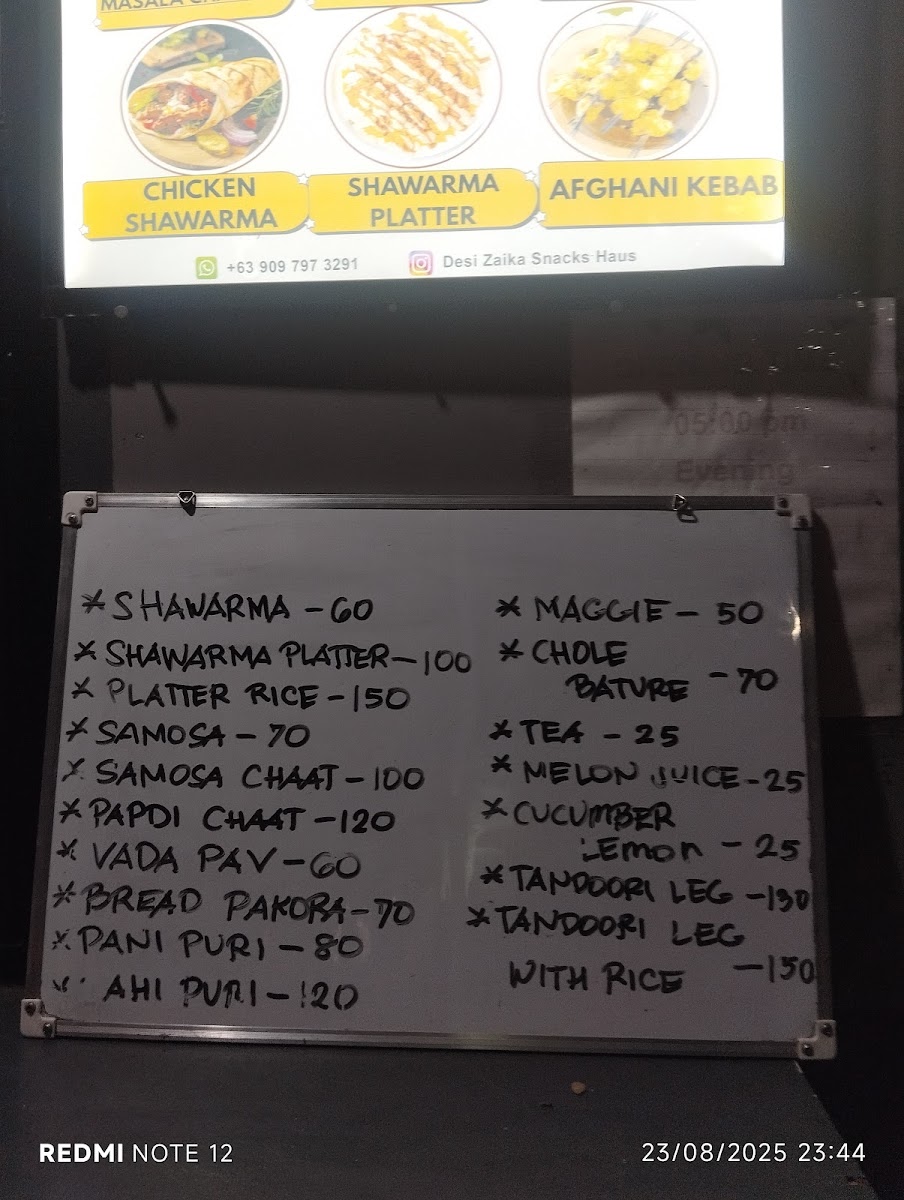 CHICKEN SHAWARMA
SHAWARMA PLATTER
AFGHANI KEBAB
+63 909 797 3291
Desi Zaika Snacks Haus
05:00 pm
Evening
* SHAWARMA - 60
* SHAWARMA PLATTER - 100
* PLATTER RICE - 150
* SAMOSA - 70
* SAMOSA CHAAT - 100
* PAPDI CHAAT - 120
* VADA PAV - 60
* BREAD PAKORA - 70
* PANI PURI - 80
AHI PURI - 120
* MAGGIE - 50
* CHOLE
BATURE - 70
* TEA - 25
* MELON JUICE - 25
* CUCUMBER
LEMON - 25
* TANDOORI LEG - 130
* TANDOORI LEG
WITH RICE - 150
REDMI NOTE 12
23/08/2025 23:44